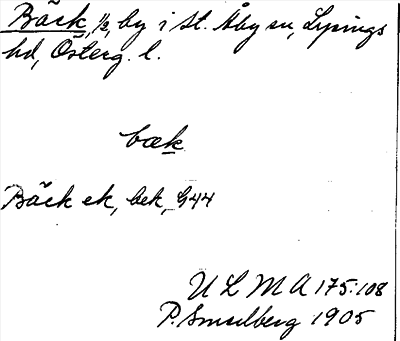 Bäck, 1/2, by i St. Åby sn, Lysings
hd, Österg. l.
bæk
Bäck ek, bek, G44
U L M A 175:108
P. Smedberg 1905